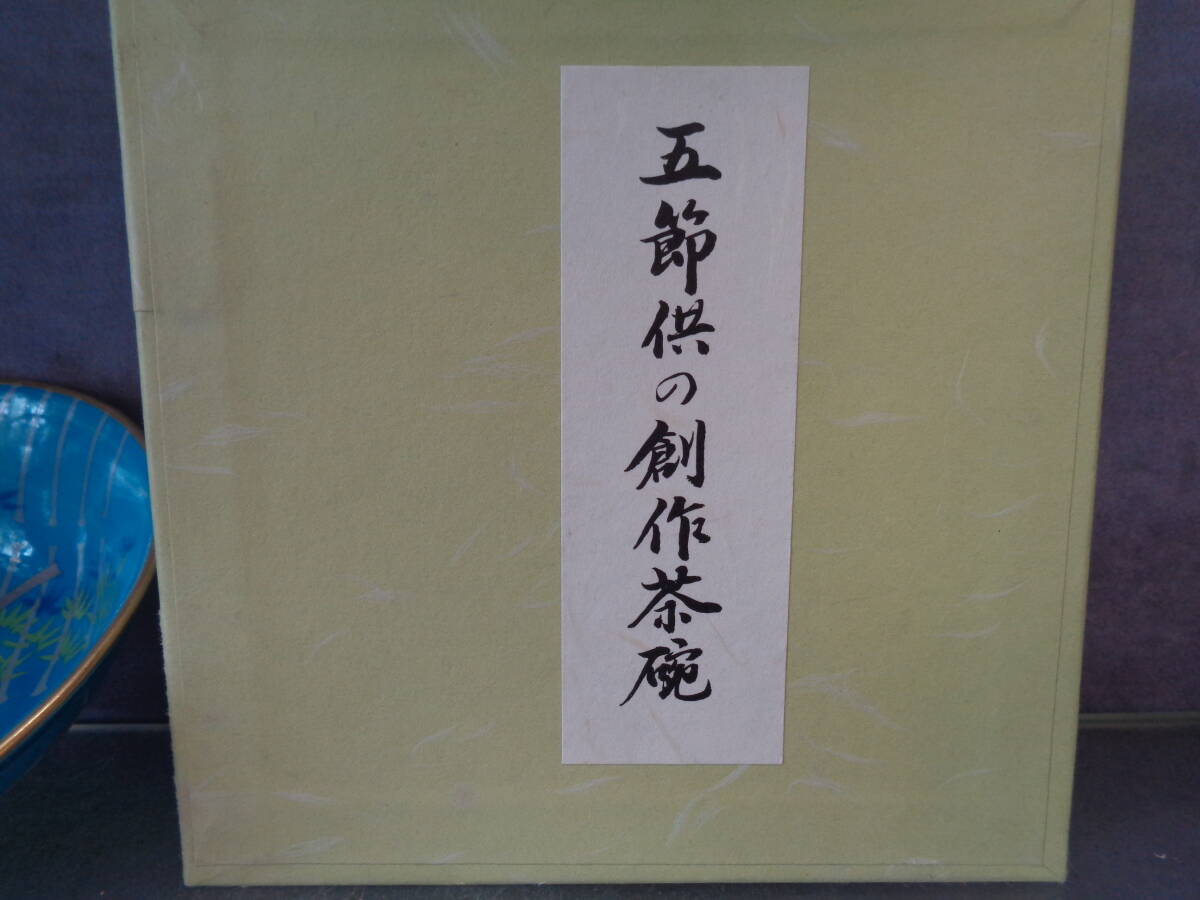 五節供の創作茶碗